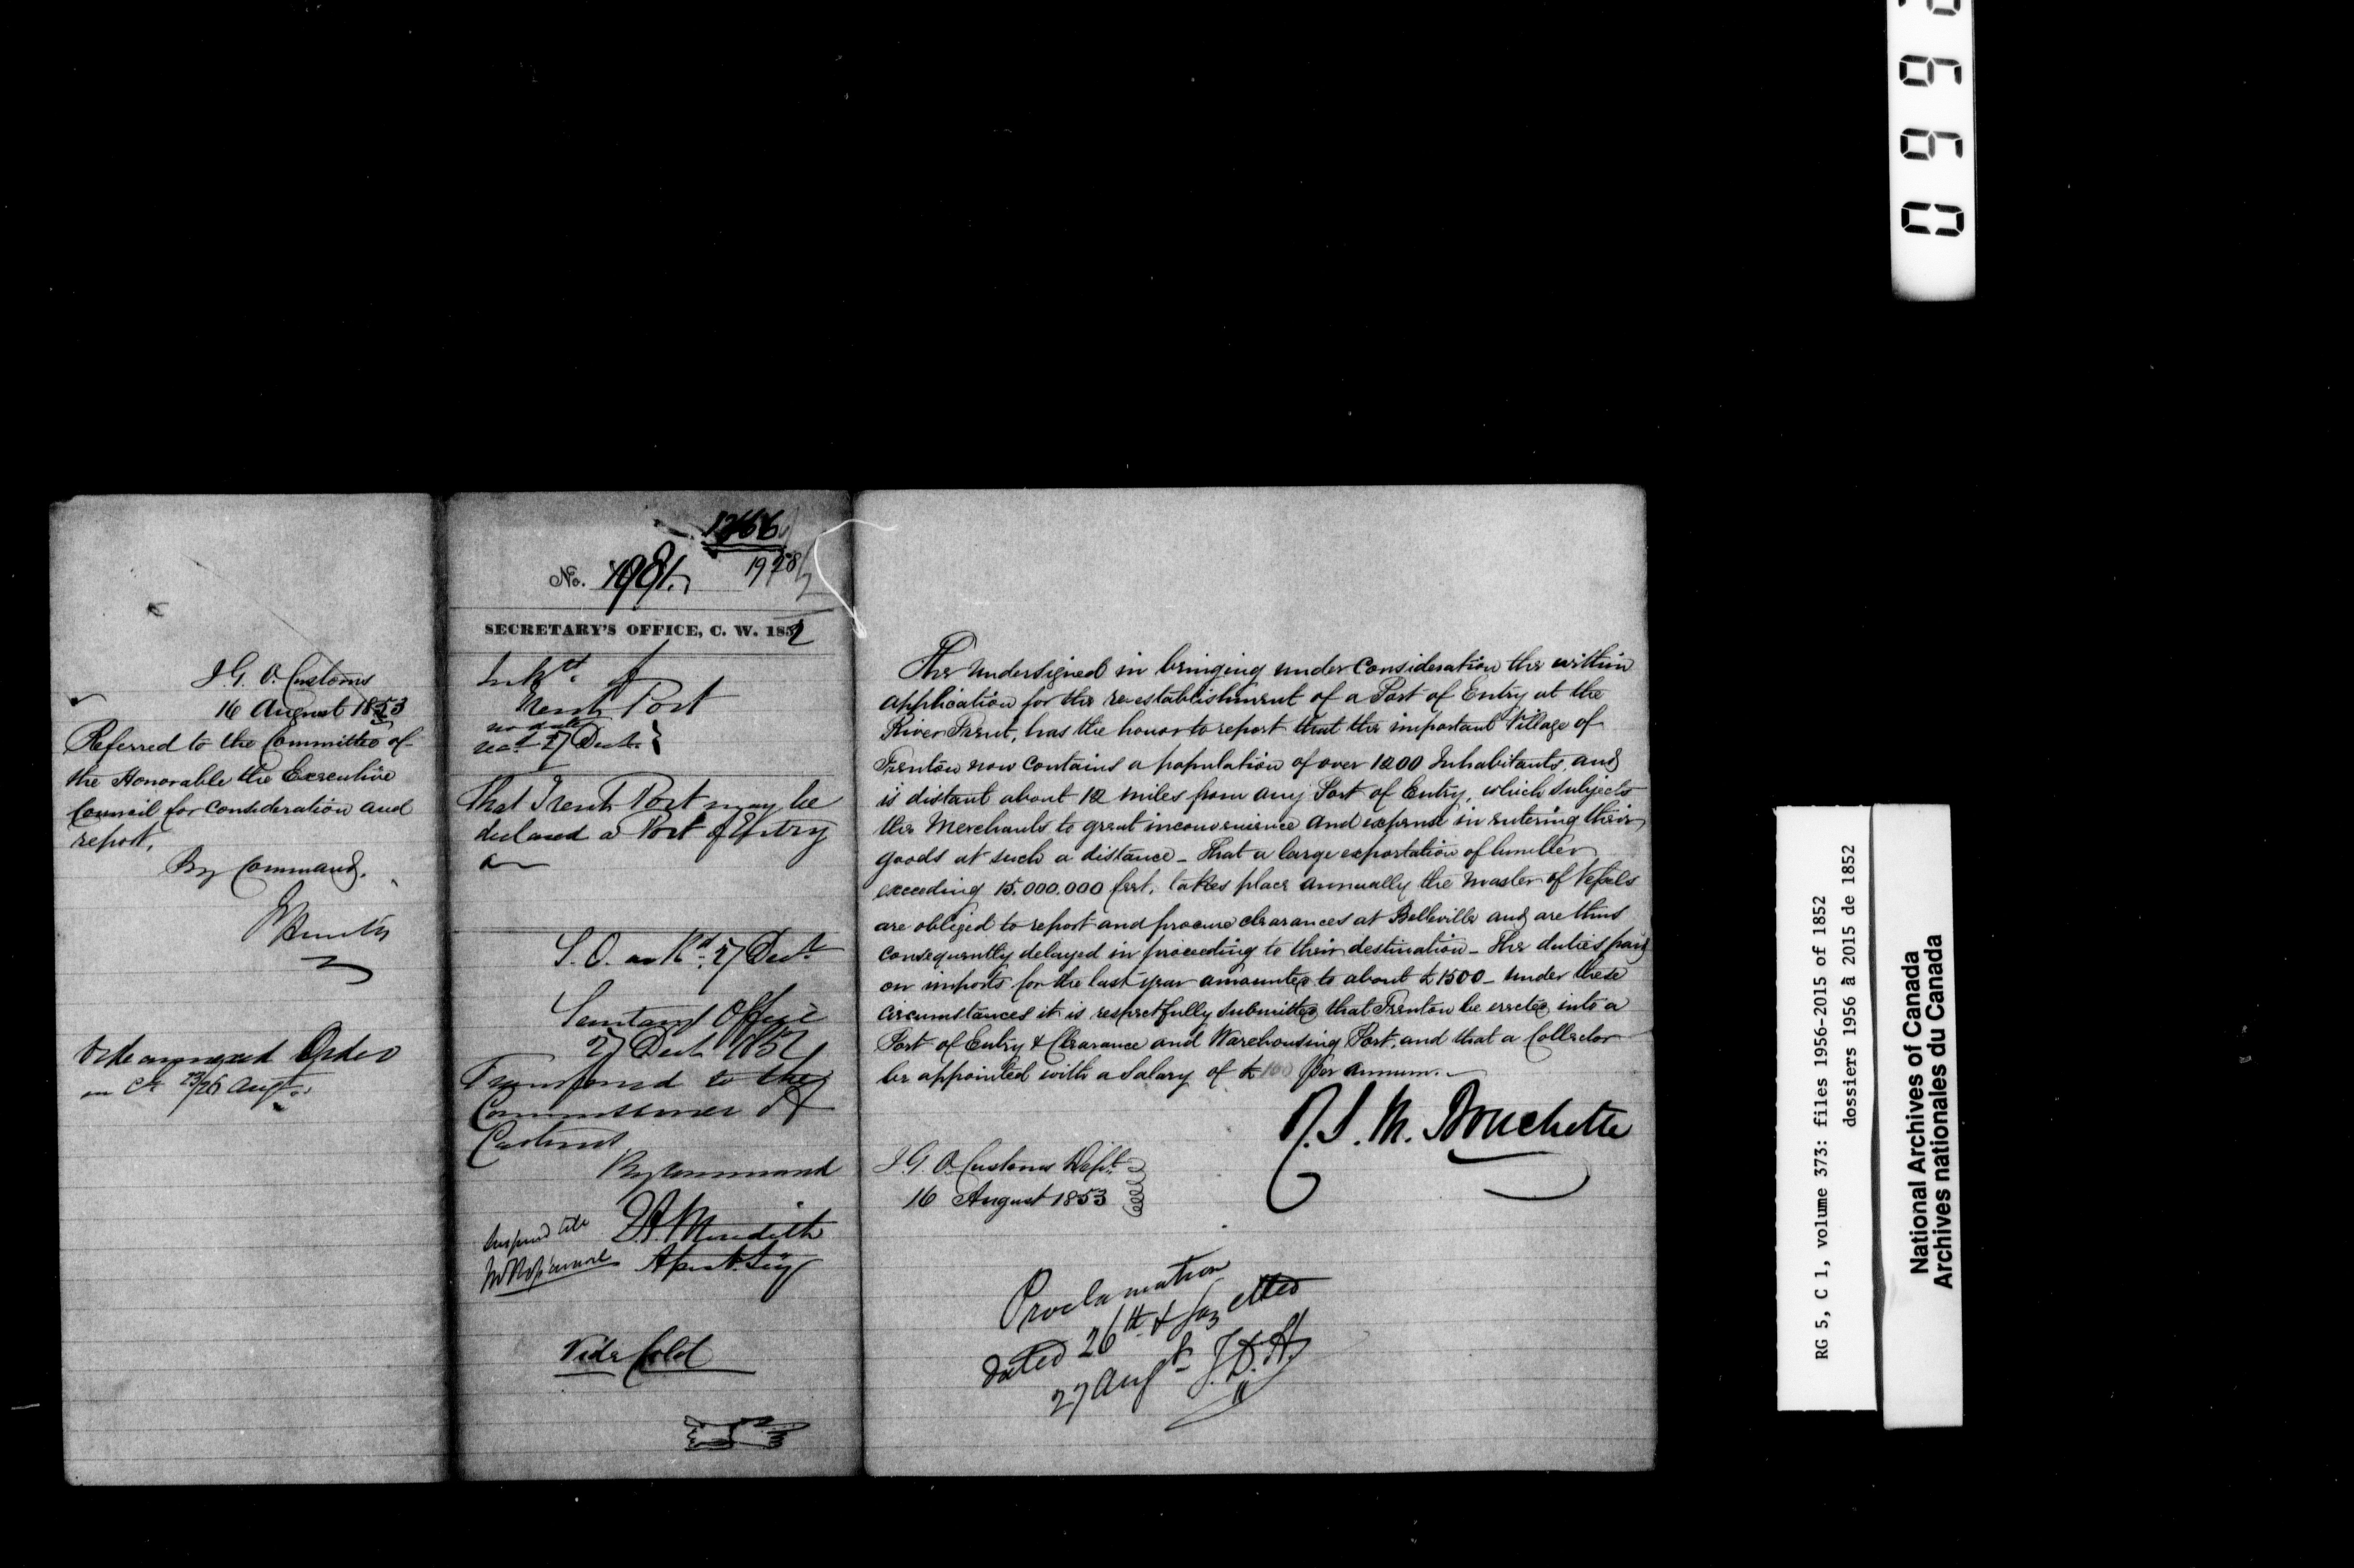 I. G. O. Customs
16 August 1853
Referred to the Committee of
the Honorable the Executive
Council for Consideration and
report.
By Command.
Vide annexed Order
in Cl. 23/26 Augt.
1266
No. 1981. 1928
SECRETARY'S OFFICE, C. W. 1852
Inhts. of
Trent Port
no date
recd. 27 Decr.
That Trent Port may be
declared a Port of Entry
S. O. Rd. 27 Decr.
Secretary's Office
27 Decr. 1852
Transferred to the
Commissioner of
Customs
By Command
E. A. Meredith
Asst. Secy
Vide fold
The Undersigned in bringing under Consideration the within
application for the re-establishment of a Port of Entry at the
River Trent, has the honor to report that the important Village of
Trenton now contains a population of over 1200 Inhabitants, and
is distant about 12 miles from any Port of Entry, which subjects
the Merchants to great inconvenience and expense in entering their
goods at such a distance – That a large exportation of lumber
exceeding 15.000.000 feet, takes place annually the Master of Vessels
are obliged to report and procure clearances at Belleville and are thus
consequently delayed in proceeding to their destination – The duties paid
on imports for the last year amounted to about £1500 – Under these
Circumstances it is respectfully submitted that Trenton be erected into a
Port of Entry & Clearance and Warehousing Port, and that a Collector
be appointed with a Salary of £100 per annum. –
R. S. M. Bouchette
I. G. O. Customs Dept.
16 August 1853
Proclamation
dated 26th & Gazetted
27 Augt. J. D. H.
0992
RG 5, C 1, volume 373: files 1956-2015 of 1852
dossiers 1956 à 2015 de 1852
National Archives of Canada
Archives nationales du Canada